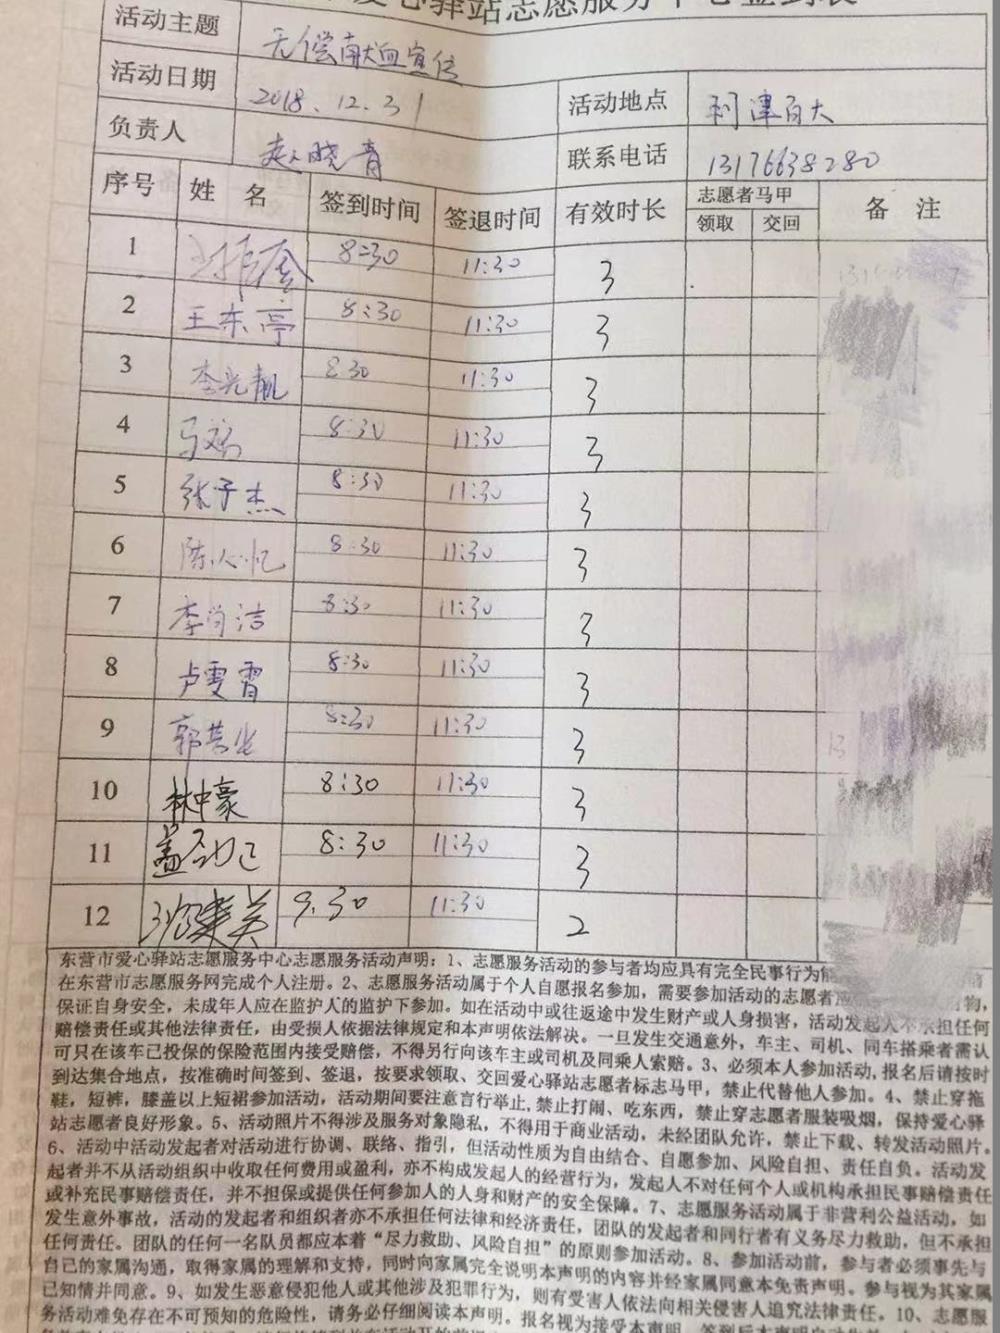 爱心驿站志愿服务中心签到表
活动主题 无偿献血宣传
活动日期 2018.12.31 活动地点 利津百大
负责人 赵晓青 联系电话 13176638280
序号 姓 名 签到时间 签退时间 有效时长 志愿者马甲 备 注
领取 交回
1 8:30 11:30 3
2 王东亭 8:30 11:30 3
3 李光靓 8:30 11:30 3
4 8:30 11:30 3
5 张子杰 8:30 11:30 3
6 陈心忆 8:30 11:30 3
7 李尚洁 8:30 11:30 3
8 卢雯霄 8:30 11:30 3
9 郭 8:30 11:30 3
10 林中豪 8:30 11:30 3
11 盖 8:30 11:30 3
12 9.30 11:30 2
东营市爱心驿站志愿服务中心志愿服务活动声明：1、志愿服务活动的参与者均应具有完全民事行为能
在东营市志愿服务网完成个人注册。2、志愿服务活动属于个人自愿报名参加，需要参加活动的志愿者应 物，
保证自身安全，未成年人应在监护人的监护下参加。如在活动中或往返途中发生财产或人身损害，活动发起人不承担任何
赔偿责任或其他法律责任，由受损人依据法律规定和本声明依法解决。一旦发生交通意外，车主、司机、同车搭乘者需认
可只在该车已投保的保险范围内接受赔偿，不得另行向该车主或司机及同乘人索赔。3、必须本人参加活动，报名后请按时
到达集合地点，按准确时间签到、签退，按要求领取、交回爱心驿站志愿者标志马甲，禁止代替他人参加。4、禁止穿拖
鞋，短裤，膝盖以上短裙参加活动，活动期间要注意言行举止，禁止打闹、吃东西，禁止穿志愿者服装吸烟，保持爱心驿
站志愿者良好形象。5、活动照片不得涉及服务对象隐私，不得用于商业活动，未经团队允许，禁止下载、转发活动照片。
6、活动中活动发起者对活动进行协调、联络、指引，但活动性质为自由结合、自愿参加、风险自担、责任自负。活动发
起者并不从活动组织中收取任何费用或盈利，亦不构成发起人的经营行为，发起人不对任何个人或机构承担民事赔偿责任
或补充民事赔偿责任，并不担保或提供任何参加人的人身和财产的安全保障。7、志愿服务活动属于非营利公益活动，如
发生意外事故，活动的发起者和组织者亦不承担任何法律和经济责任，团队的发起者和同行者有义务尽力救助，但不承担
任何责任。团队的任何一名队员都应本着“尽力救助、风险自担”的原则参加活动。8、参加活动前，参与者必须事先与
自己的家属沟通，取得家属的理解和支持，同时向家属完全说明本声明的内容并经家属同意本免责声明。参与视为其家属
已知情并同意。9、如发生恶意侵犯他人或其他涉及犯罪行为，则有受害人依法向相关侵害人追究法律责任。10、志愿服
务活动难免存在不可预知的危险性，请务必仔细阅读本声明。报名视为接受本声明，